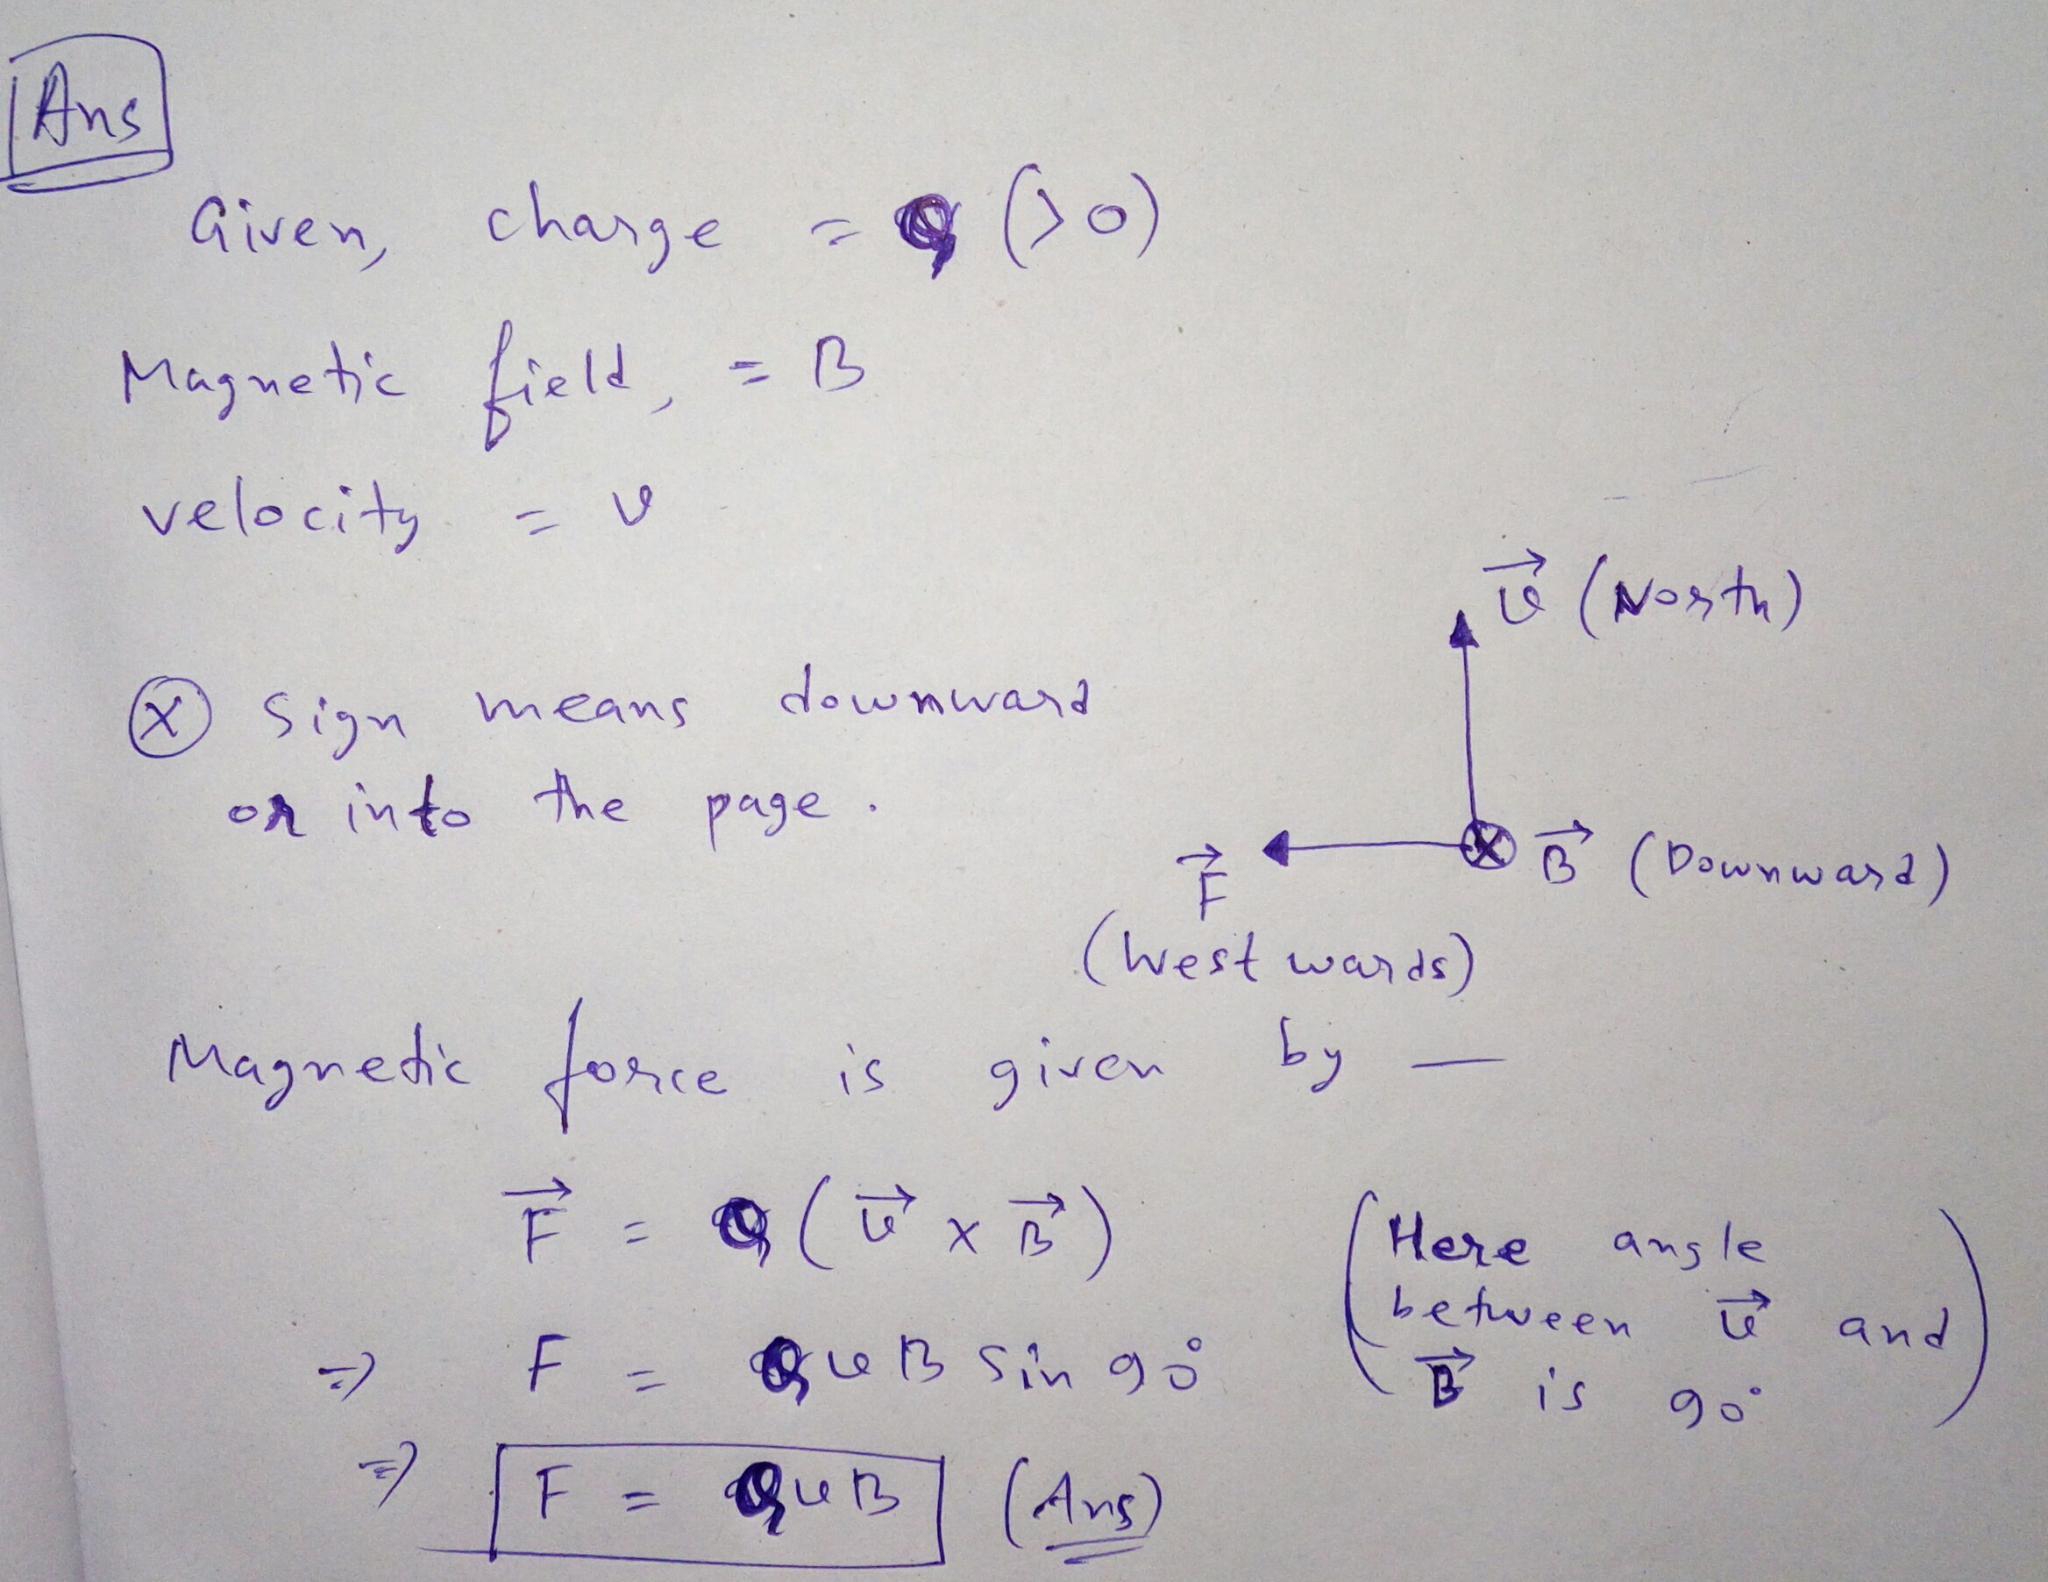 Ans
Given, charge = q (>0)
Magnetic field, = B
velocity = v
v⃗ (North)
ⓧ sign means downward
or into the page.
ⓧ B⃗ (Downward)
F⃗
(West wards)
Magnetic force is given by —
F⃗ = q (v⃗ × B⃗)
⇒ F = qvB sin 90°
(Here angle
between v⃗ and
B⃗ is 90°)
⇒ F = qvB (Ans)